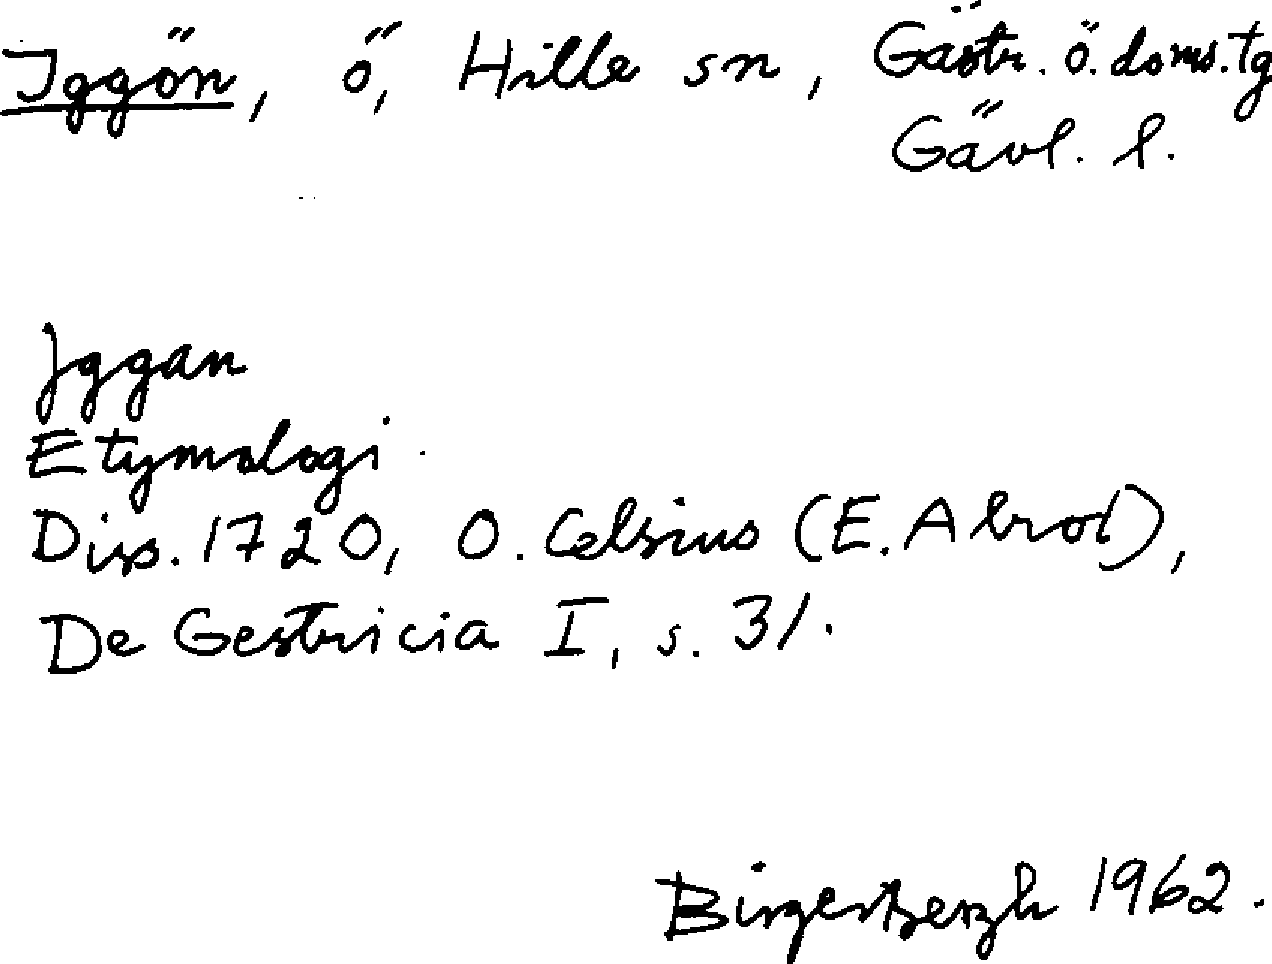 Iggön, ö, Hille sn, Gästr. ö. doms. tg
Gävl. l.
Iggan
Etymologi
Diss. 1720, O. Celsius (E. Abrod),
De Gestricia I, s. 31.
Birger Bergh 1962.